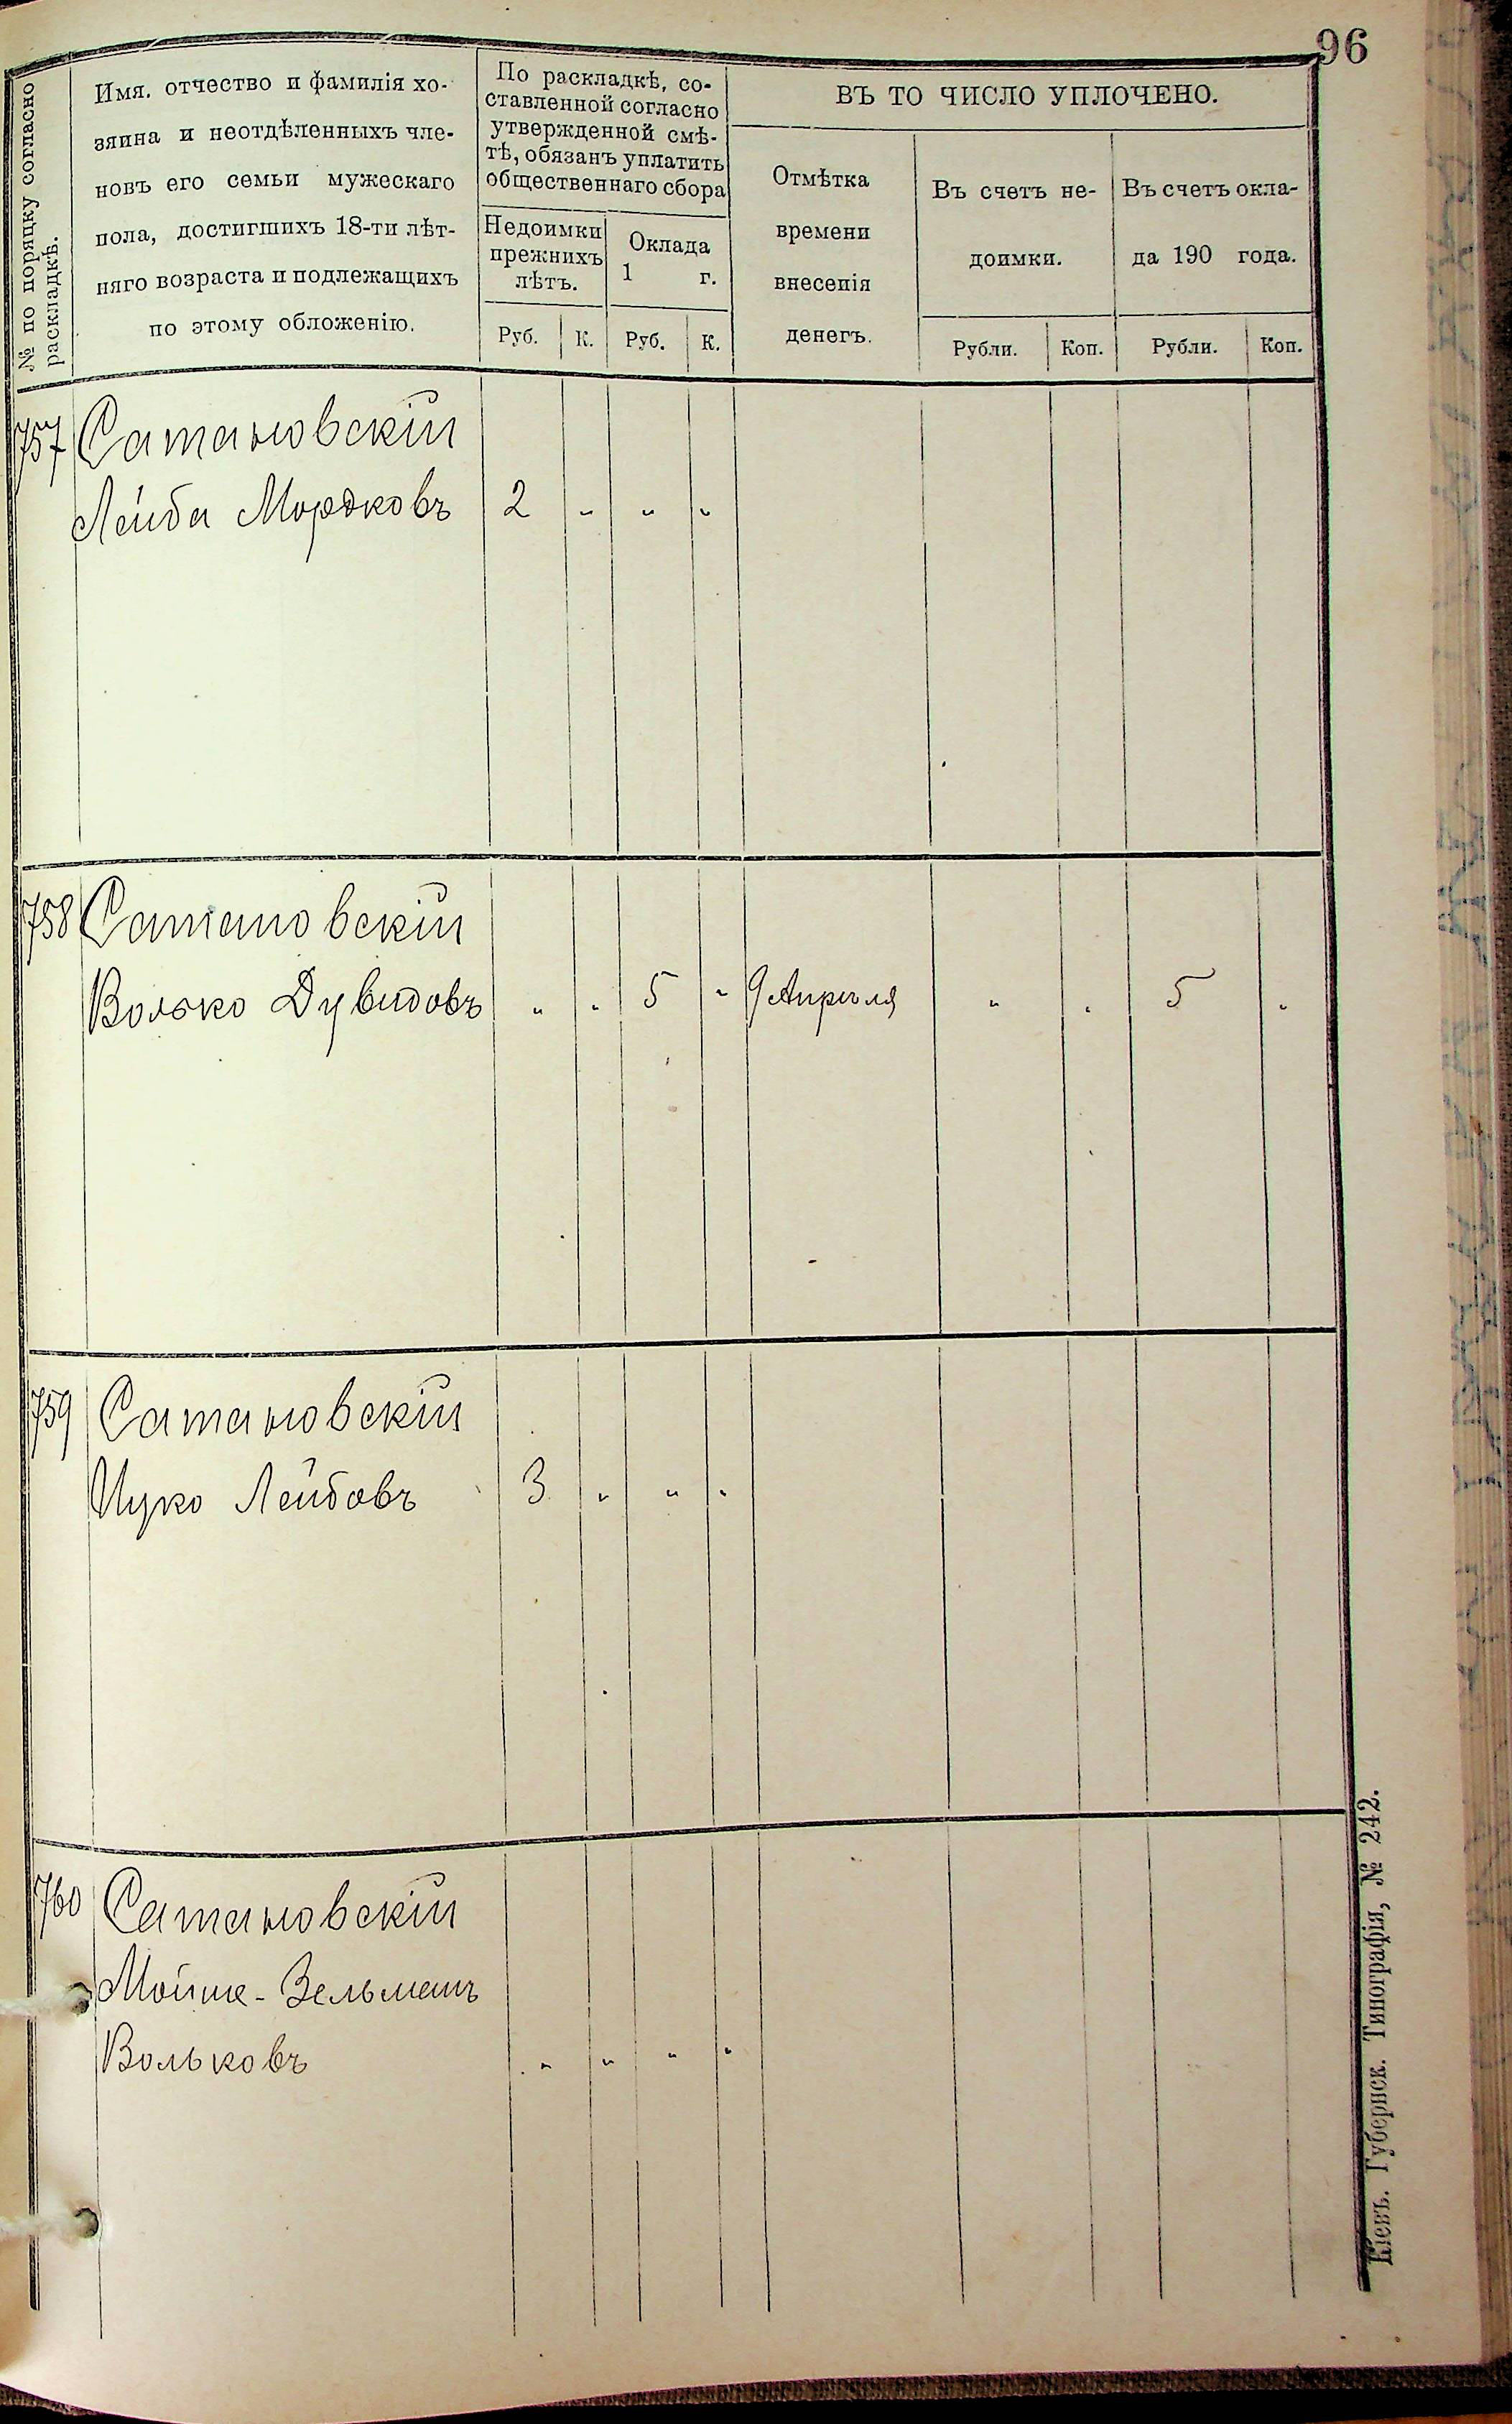 96
№ по порядку согласно
раскладкѣ.
Имя. отчество и фамилія хо-
зяина и неотдѣленныхъ чле-
новъ его семьи мужескаго
пола, достигшихъ 18-ти лѣт-
няго возраста и подлежащихъ
по этому обложенію.
По раскладкѣ, со-
ставленной согласно
утвержденной смѣ-
тѣ, обязанъ уплатить
общественнаго сбора
Недоимки
прежнихъ
лѣтъ.
Оклада
1 г.
Руб. К. Руб. К.
ВЪ ТО ЧИСЛО УПЛОЧЕНО.
Отмѣтка
времени
внесенія
денегъ.
Въ счетъ не-
доимки.
Въ счетъ окла-
да 190 года.
Рубли. Коп. Рубли. Коп.
757 Сатановскій
Лейба Мордковъ 2 " " "
758 Сатановскій
Волько Дувидовъ " " 5 " 9 Апрѣля " " 5 "
759 Сатановскій
Ицко Лейбовъ 3 " " "
760 Сатановскій
Мойше-Зельманъ
Вольковъ " " " "
Кіевъ. Губернск. Типографія, № 242.